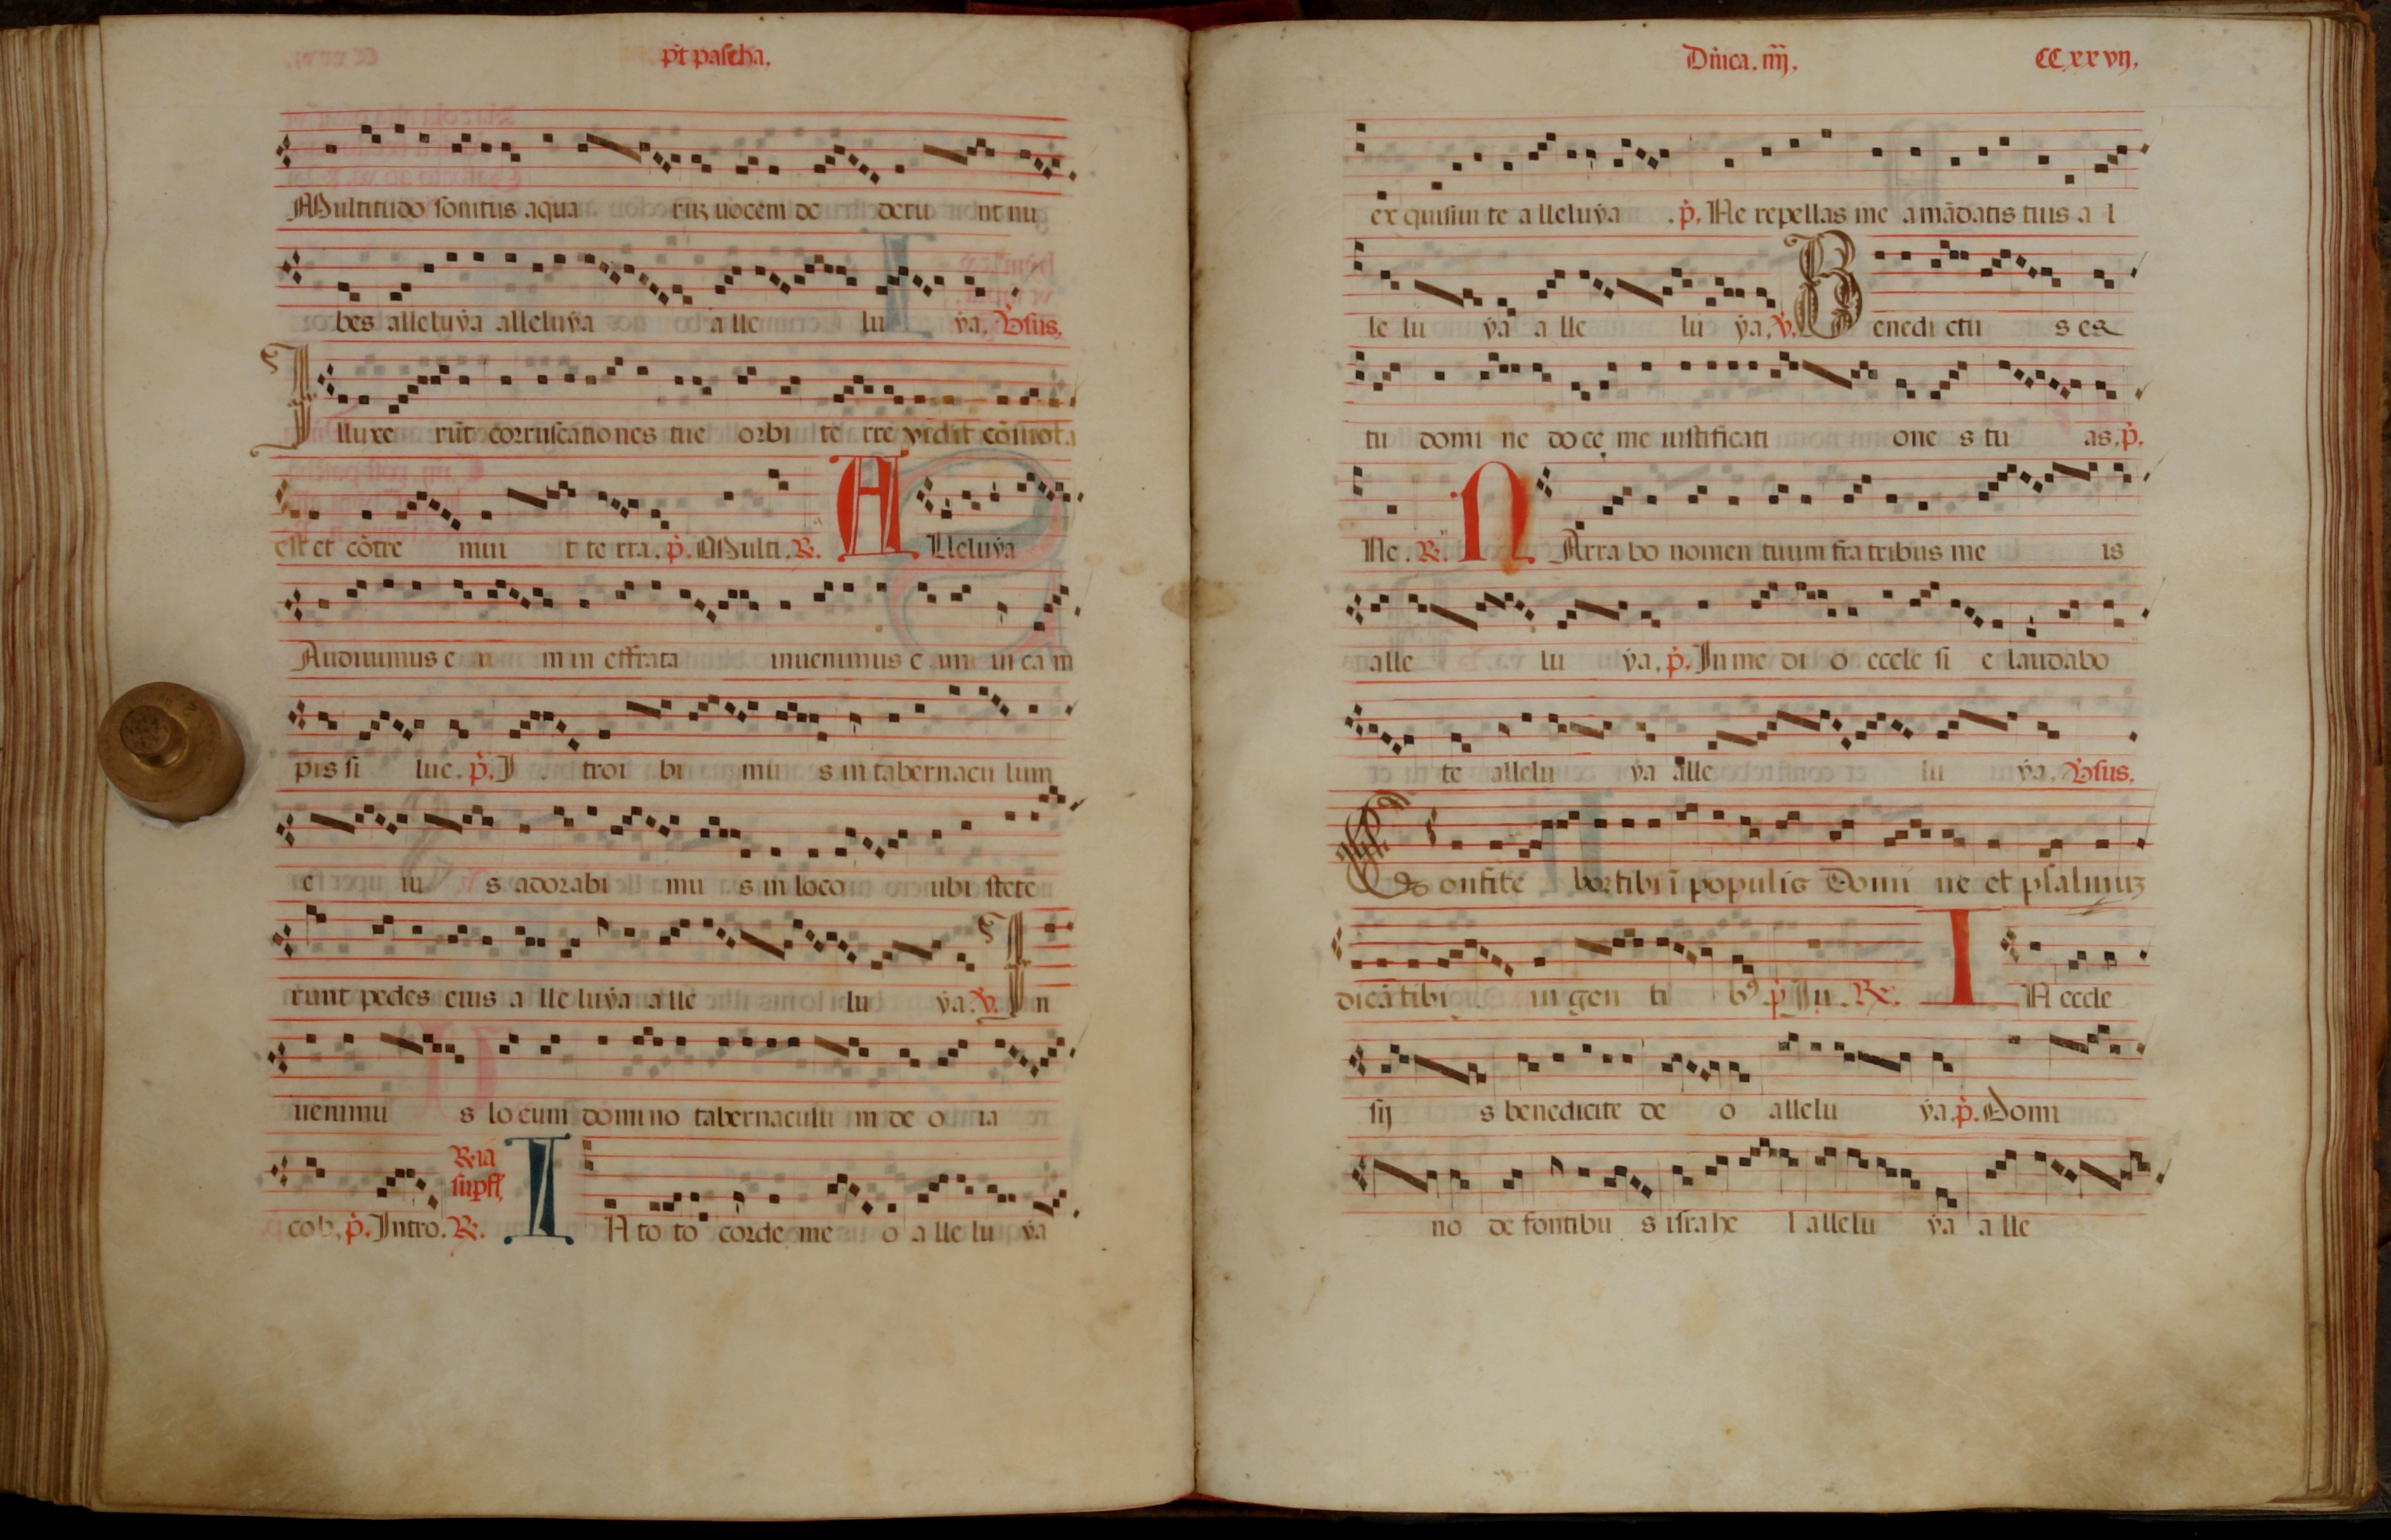 p̄t pascha.
Multitudo sonitus aqua ruꝫ uocem de deru nt nu
bes alleluẏa alleluẏa a lle lu ẏa. V̓sus.
Illuxe rūt corruscationes tue orbi te rre vidit cōmota
est et cōtre mui t te rra. p̓. Multi. R̓.
ALleluẏa
Audiuimus e a m in effrata inuenimus e am in ca m
pis si lue. p̓. I troi bi mu s in tabernacu lum
e iu s adorabi mu s in loco ubi stete
runt pedes eius a lle luẏa a lle lu ẏa. V̓. In
uenimu s lo cum domi no tabernaculu m de o ia
cob. p̓. Intro. R̓.
IN to to corde me o a lle lu ẏa
Dn̄ica. iiij.
CCxxvij.
ex quisiui te a lleluẏa . p̓. Ne repellas me a mādatis tuis a l
le lu ẏa a lle lu ẏa. V̓. Benedi ctu s es
tu domi ne doce me iustificati one s tu as. p̓.
Ne. R̓. NArra bo nomen tuum fra tribus me is
alle lu ẏa. p̓. In me di o eccle si e laudabo
te allelu ẏa alle lu ẏa. V̓sus.
Confite bor tibi ī populis Domi ne et psalmuꝫ
dicā tibi in gen ti bꝰ p̓ In. R̓.
IN eccle
sij s benedicite de o allelu ẏa. p̓. Domi
no de fontibu s israhe l allelu ẏa a lle